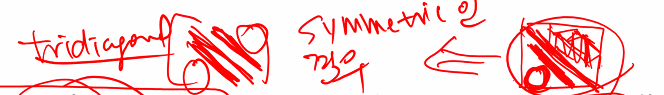 tridiagonal
symmetric인
경우